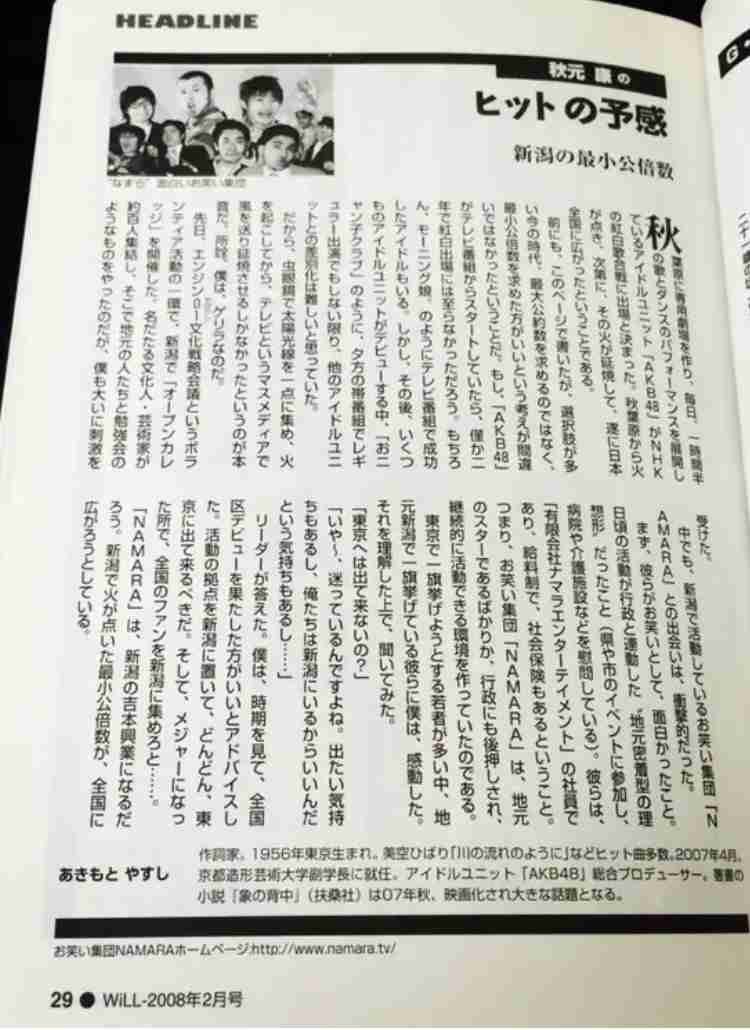 HEADLINE
秋元 康の
ヒットの予感
新潟の最小公倍数
"なまら"面白いお笑い集団
秋葉原に専用劇場を作り、毎日、一時間半
の歌とダンスのパフォーマンスを展開し
ているアイドルユニット「AKB48」がNHK
の紅白歌合戦に出場と決まった。秋葉原から火
が点き、次第に、その火が延焼して、遂に日本
全国に広がったということである。
前にも、このページで書いたが、選択肢が多
い今の時代、最大公約数を求めるのではなく、
最小公倍数を求めた方がいいという考えが間違
いではなかったということだ。もし、「AKB48」
がテレビ番組からスタートしていたら、僅か二
年で紅白出場には至らなかっただろう。もちろ
ん、モーニング娘。のようにテレビ番組で成功
したアイドルもいる。しかし、その後、いくつ
ものアイドルユニットがデビューする中、「おニ
ャン子クラブ」のように、夕方の帯番組でレギ
ュラー出演でもしない限り、他のアイドルユニ
ットとの差別化は難しいと思っていた。
だから、虫眼鏡で太陽光線を一点に集め、火
を起こしてから、テレビというマスメディアで
風を送り延焼させるしかなかったというのが本
音だ。所詮、僕は、ゲリラなのだ。
先日、エンジン01文化戦略会議というボラ
ンティア活動の一環で、新潟で「オープンカレ
ッジ」を開催した。名だたる文化人・芸術家が
約百人集結し、そこで地元の人たちと勉強会の
ようなものをやったのだが、僕も大いに刺激を
受けた。
中でも、新潟で活動しているお笑い集団「N
AMARA」との出会いは、衝撃的だった。
まず、彼らがお笑いとして、面白かったこと。
日頃の活動が行政と連動した"地元密着型の理
想形"だったこと(県や市のイベントに参加し、
病院や介護施設などを慰問している)。彼らは、
「有限会社ナマラエンターテイメント」の社員で
あり、給料制で、社会保険もあるということ。
つまり、お笑い集団「NAMARA」は、地元
のスターであるばかりか、行政にも後押しされ、
継続的に活動できる環境を作っていたのである。
東京で一旗挙げようとする若者が多い中、地
元新潟で一旗挙げている彼らに僕は、感動した。
それを理解した上で、聞いてみた。
「東京へは出て来ないの?」
「いや〜、迷っているんですよね。出たい気持
ちもあるし、俺たちは新潟にいるからいいんだ
という気持ちもあるし……」
リーダーが答えた。僕は、時期を見て、全国
区デビューを果たした方がいいとアドバイスし
た。活動の拠点を新潟に置いて、どんどん、東
京に出て来るべきだ。そして、メジャーになっ
た所で、全国のファンを新潟に集めろと……。
「NAMARA」は、新潟の吉本興業になるだ
ろう。新潟で火が点いた最小公倍数が、全国に
広がろうとしている。
あきもと やすし
作詞家。1956年東京生まれ。美空ひばり「川の流れのように」などヒット曲多数。2007年4月、
京都造形芸術大学副学長に就任。アイドルユニット「AKB48」総合プロデューサー。著書の
小説「象の背中」(扶桑社)は07年秋、映画化され大きな話題となる。
お笑い集団NAMARAホームページ:http://www.namara.tv/
29 ● WiLL-2008年2月号